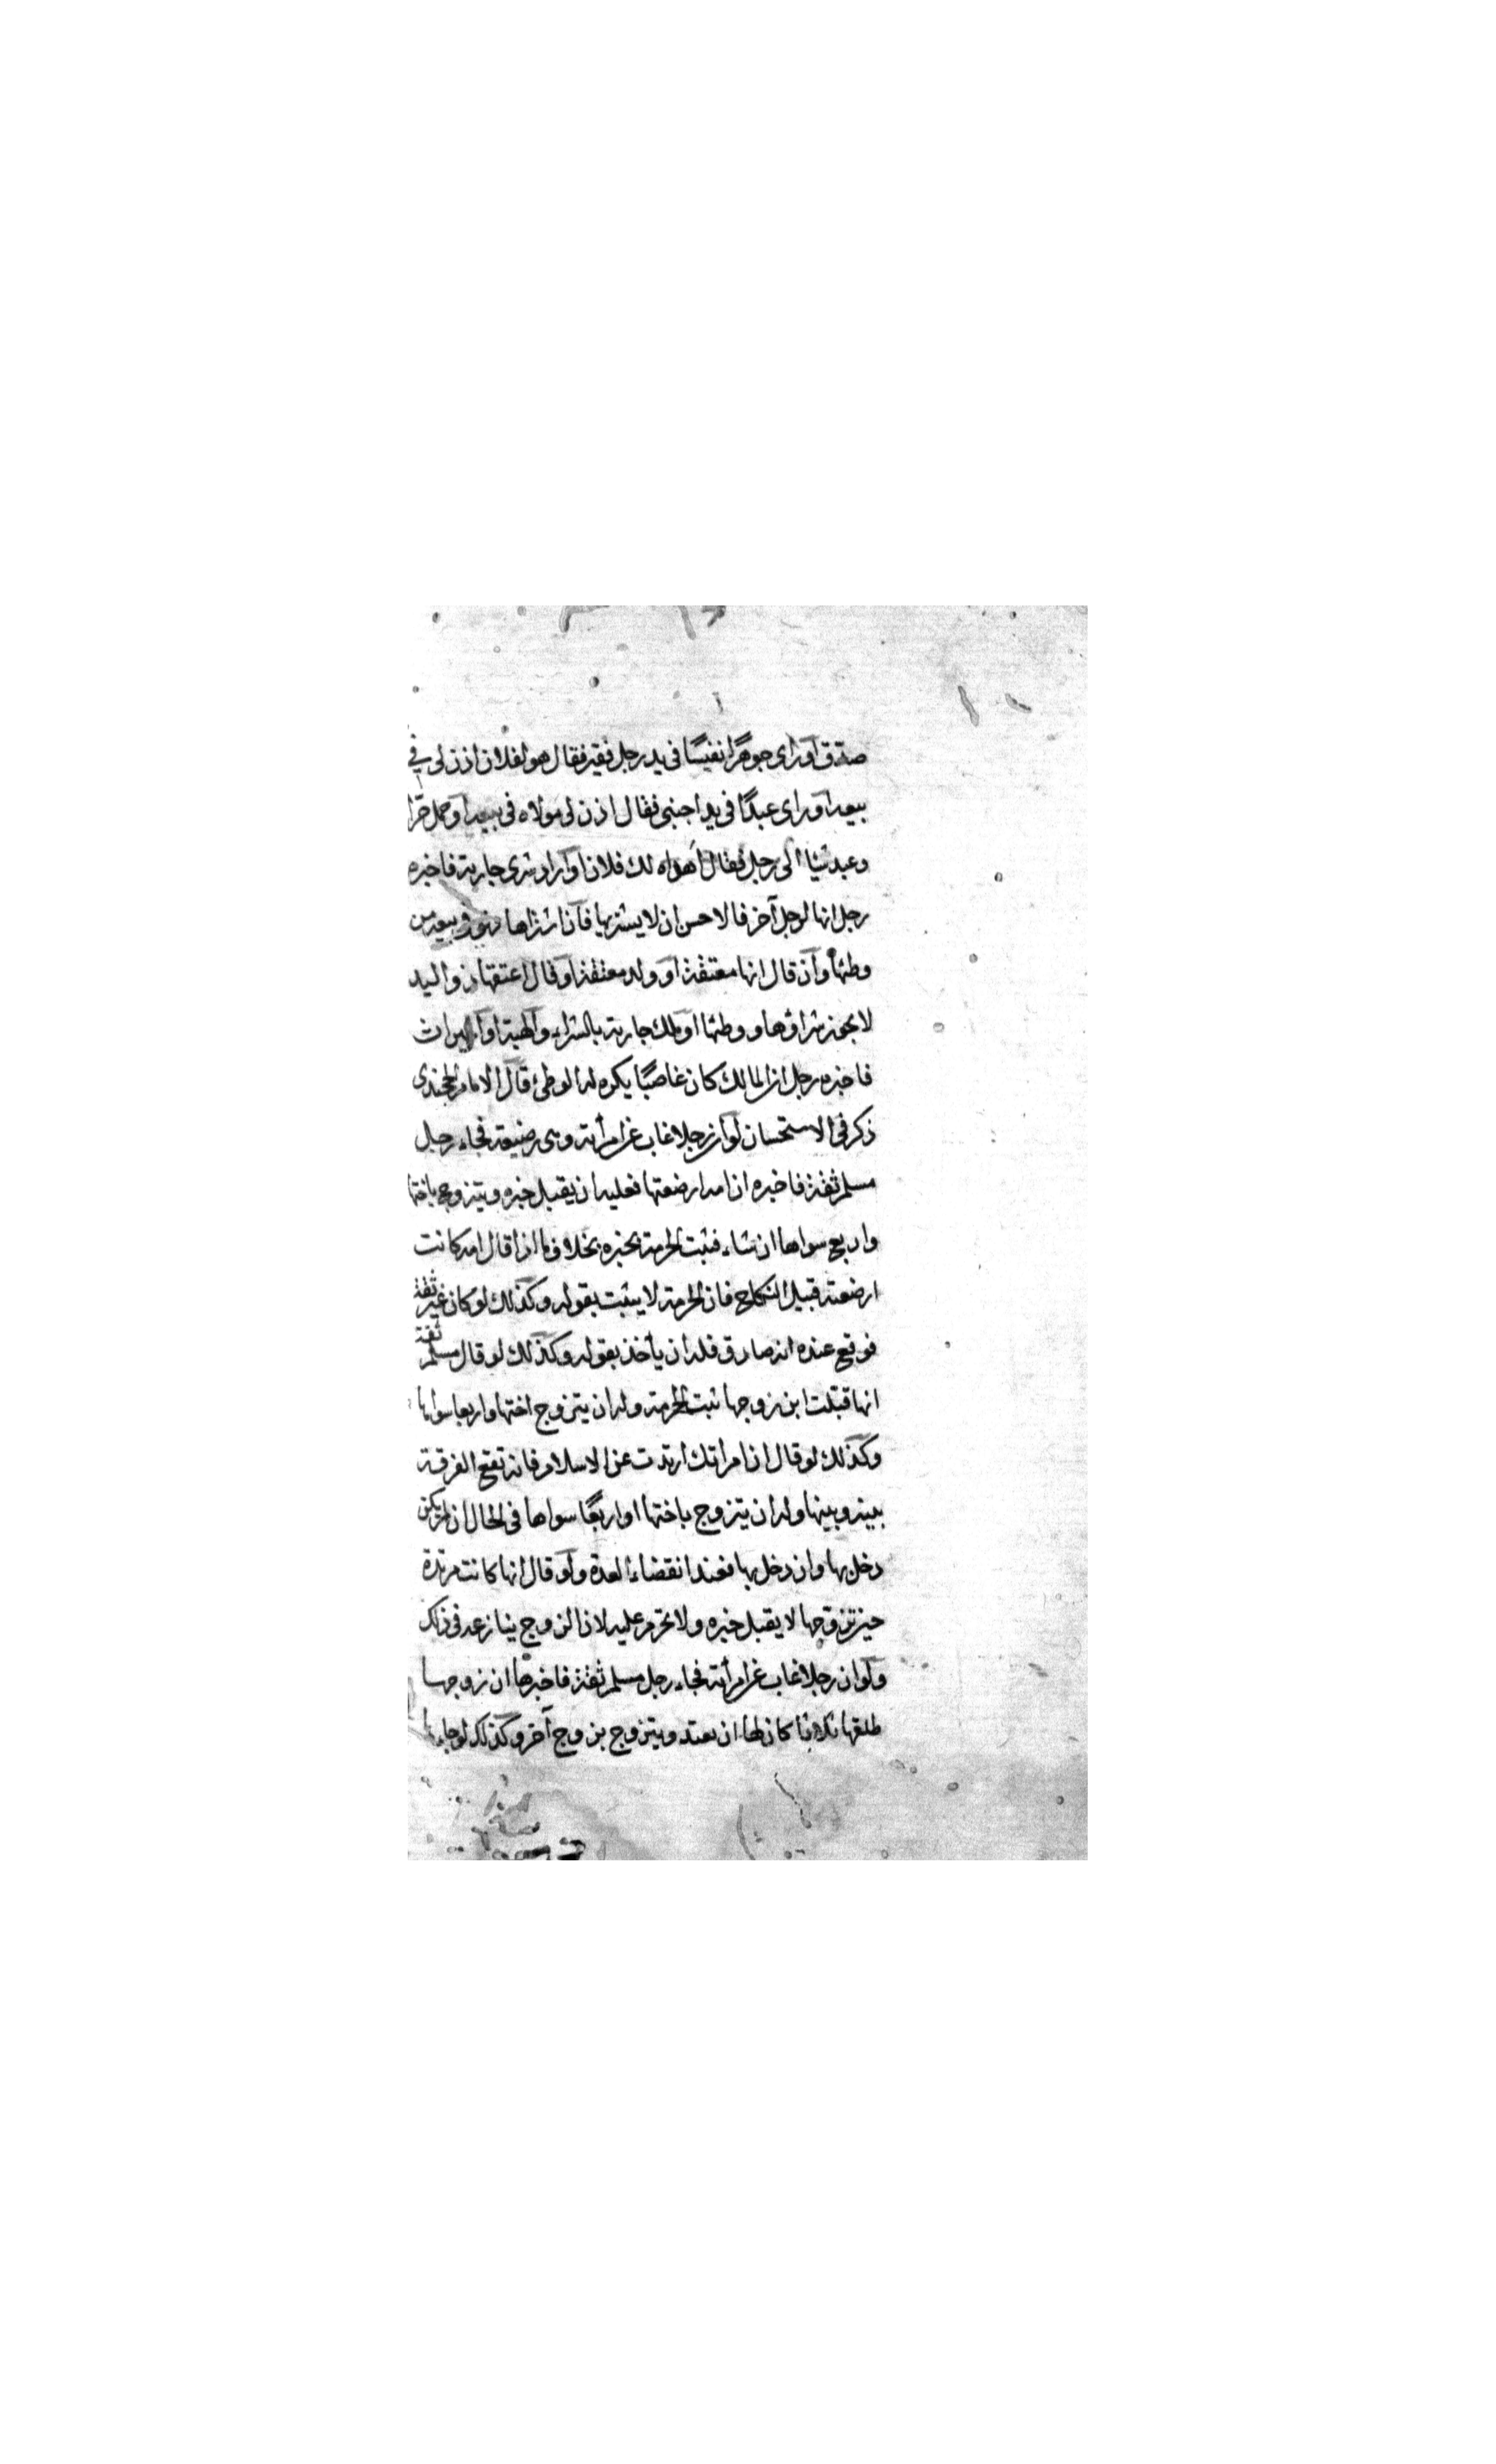 صدق او رأى جوهرًا نفيسًا فى يد رجل فقير فقال هو لفلان اذن لى فى
بيعه او رأى عبدًا فى يد اجنبى فقال اذن لى مولاه فى بيعه او حمل حرا
وعبد شيئا الى رجل فقال اهداه لك فلان او اراد شرى جارية فاخبره
رجل انها لرجل آخر فالاحسن ان لا يشتريها فان اشتراها وبيعه من
وطئها وان قال انها معتقة او ولد معتقة او قال اعتقها ذو اليد
لا يجوز شراؤها ووطئها او ملك جارية بالشراء والهبة او الميراث
فاخبره رجل ان المالك كان غاصبًا يكره له الوطئ قال الامام الخجندى
ذكر فى الاستحسان لو ان رجلا غاب عن امرأته وهى رضيعة فجاء رجل
مسلم ثقة فاخبره ان امه ارضعتها فعليه ان يقبل خبره ويتزوج باختها
واربع سواها ان شاء فثبت الحرمة بخبره بخلاف ما اذا قال امه كانت
ارضعته قبيل النكاح فان الحرمة لا يثبت بقوله وكذلك لو كان غير ثقة
فوقع عنده انه صادق فله ان يأخذ بقوله وكذلك لو قال مسلم ثقة
انها قبّلت ابن زوجها ثبت الحرمة وله ان يتزوج اختها واربعا سواها
وكذلك لو قال ان امراتك ارتدت عن الاسلام فانه تقع الفرقة
بينه وبينها وله ان يتزوج باختها او اربعًا سواها فى الحال ان لم يكن
دخل بها وان دخل بها فعند انقضاء العدة ولو قال انها كانت مرتدة
حين تزوجها لا يقبل خبره ولا تحرم عليه لان الزوج ينازعه فى ذلك
ولو ان رجلا غاب عن امرأته فجاء رجل مسلم ثقة فاخبرها ان زوجها
طلقها ثلاثا كان لها ان تعتد ويتزوج بزوج آخر وكذلك لو جاءها